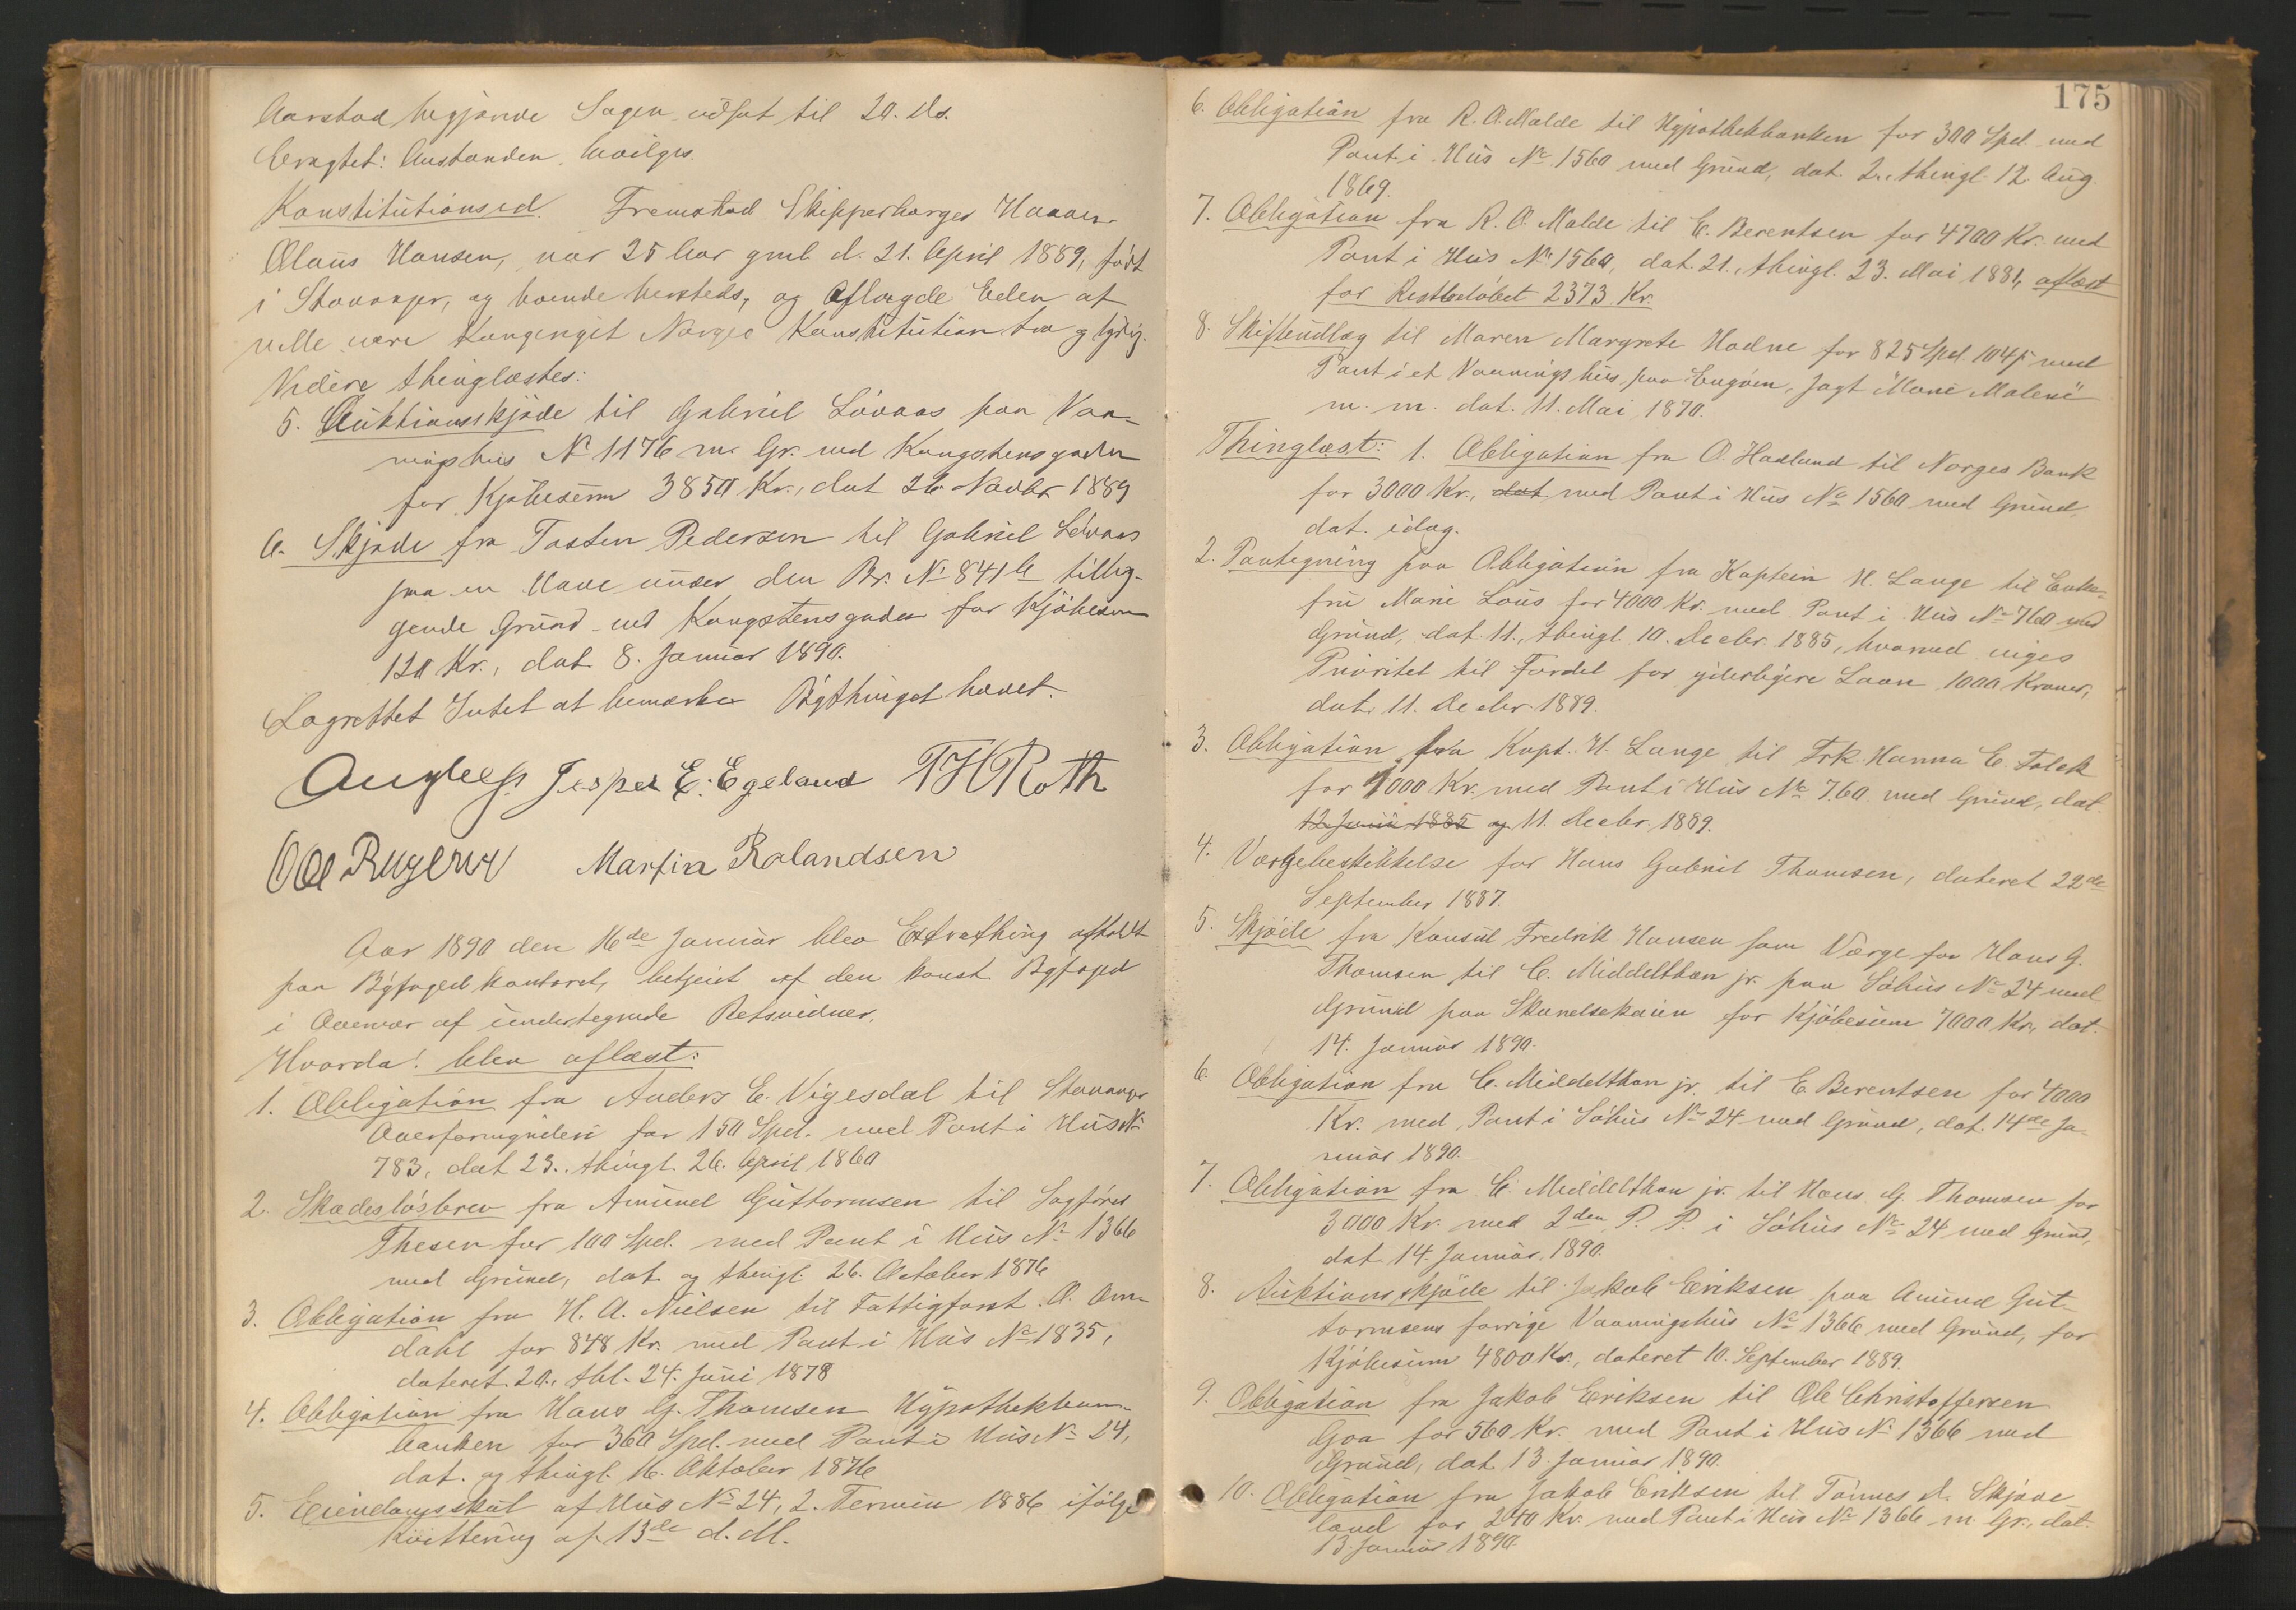 Aarstad begjærede Sagen udsat til 20. ds.
Eragtet: Anstanden bevilges.
Konstitutionsed. Fremstod Skipperborger
Olaus Hansen, var 25 Aar gml. d. 21. April 1889, født
i Stavanger, og boende hersteds, og aflagde Eden at
ville være Kongeriget Norges Konstitution tro og lydig.
Videre thinglæstes:
5. Auktionsskjøde til Gabriel Lövaas paa Vaa-
ningshus No 1176 m. Gr. ved Kongstensgaden
for Kjøbesum 3850 Kr., dat 26 Novbr 1889
6. Skjøde fra Tosten Pedersen til Gabriel Lövaas
paa en Have under den Br. No 841 b tillig-
gende Grund ved Kongstensgaden for Kjøbesum
120 Kr., dat. 8. Januar 1890.
Lagrettet Intet at bemærke Bythinget hævet.
Jesper E. Egeland THRoth
Martin Rolandsen
Aar 1890 den 16de Januar blev Extrathing afholdt
paa Byfogedkontoret, betjent af den konst. Byfoged
i Overvær af undertegnede Retsvidner.
Hvorda: blev aflæst:
1. Obligation fra Anders E. Vigesdal til Stavanger
Overformynderi for 150 Spd. med Pant i Hus No
783, dat 23. thingl. 26. April 1860
2. Skadesløsbrev fra Amund Guttormsen til Sagfører
Thesen for 100 Spd. med Pant i Hus No 1366
med Grund, dat og thingl. 26. October 1876
3. Obligation fra H. A. Nielsen til Fattigforst. O. Om-
dahl for 848 Kr. med Pant i Hus No 1835,
dateret 20., thl. 24. Juni 1878
4. Obligation fra Hans G. Thomsen Hypothekban-
banken for 360 Spd. med Pant i Hus No 24,
dat. og thingl. 16. Oktober 1876
5. Eiendomsskat af Hus No 24, 2. Termin 1886 ifølge
Kvittering af 13de d. M.
175
6. Obligation fra R. O. Malde til Hypothekbanken for 300 Spd. med
Pant i Hus No 1560 med Grund, dat. 2., thingl. 12. Aug.
1869.
7. Obligation fra R. O. Malde til E. Berentsen for 4700 Kr. med
Pant i Hus No 1560, dat. 21., thingl. 23. Mai 1881, aflæst
for Restbeløbet 2373 Kr.
8. Skifteudlæg til Maren Margrete Hadne for 825 Spd. 104 ß med
Pant i et Vaaningshus paa Engøen, Jagt "Marie Malene"
m. m. dat. 11. Mai 1870.
Thinglæst: 1. Obligation fra O. Hadland til Norges Bank
for 3000 Kr., dat. med Pant i Hus No 1560 med Grund,
dat. idag.
2. Paategning paa Obligation fra Kaptein H. Lange til Enke-
fru Marie Lous for 4000 Kr. med Pant i Hus No 760 med
Grund, dat. 11., thingl. 10. Decbr. 1885, hvorved viges
Prioritet til Fordel for yderligere Laan 1000 Kroner,
dat. 11. Decbr. 1889.
3. Obligation fra Kapt. H. Lange til Frk. Hanna E. Falck
for 1000 Kr. med Pant i Hus No 760 med Grund, dat.
12 Juni 1885 og 11. Decbr. 1889.
4. Værgebeskikkelse for Hans Gabriel Thomsen, dateret 22de
September 1887.
5. Skjøde fra Konsul Fredrik Hansen som Værge for Hans G.
Thomsen til C. Middelthon jr. paa Søhus No 24 med
Grund paa Skandsekaien for Kjøbesum 7000 Kr., dat.
14. Januar 1890.
6. Obligation fra C. Middelthon jr. til E. Berentsen for 4000
Kr. med Pant i Søhus No 24 med Grund, dat. 14de Ja-
nuar 1890.
7. Obligation fra C. Middelthon jr. til Hans G. Thomsen for
3000 Kr. med 2den P. P. i Søhus No 24 med Grund,
dat. 14. Januar 1890.
8. Auktionsskjøde til Jakob Eriksen paa Amund Gut-
tormsens forrige Vaaningshus No 1366 med Grund, for
Kjøbesum 4800 Kr., dateret 10. September 1889.
9. Obligation fra Jakob Eriksen til Ole Christoffersen
Goa for 560 Kr. med Pant i Hus No 1366 med
Grund, dat. 13. Januar 1890.
10. Obligation fra Jakob Eriksen til Tönnes d. Skjæve-
land for 240 Kr. med Pant i Hus No 1366 m. Gr., dat.
13. Januar 1890.